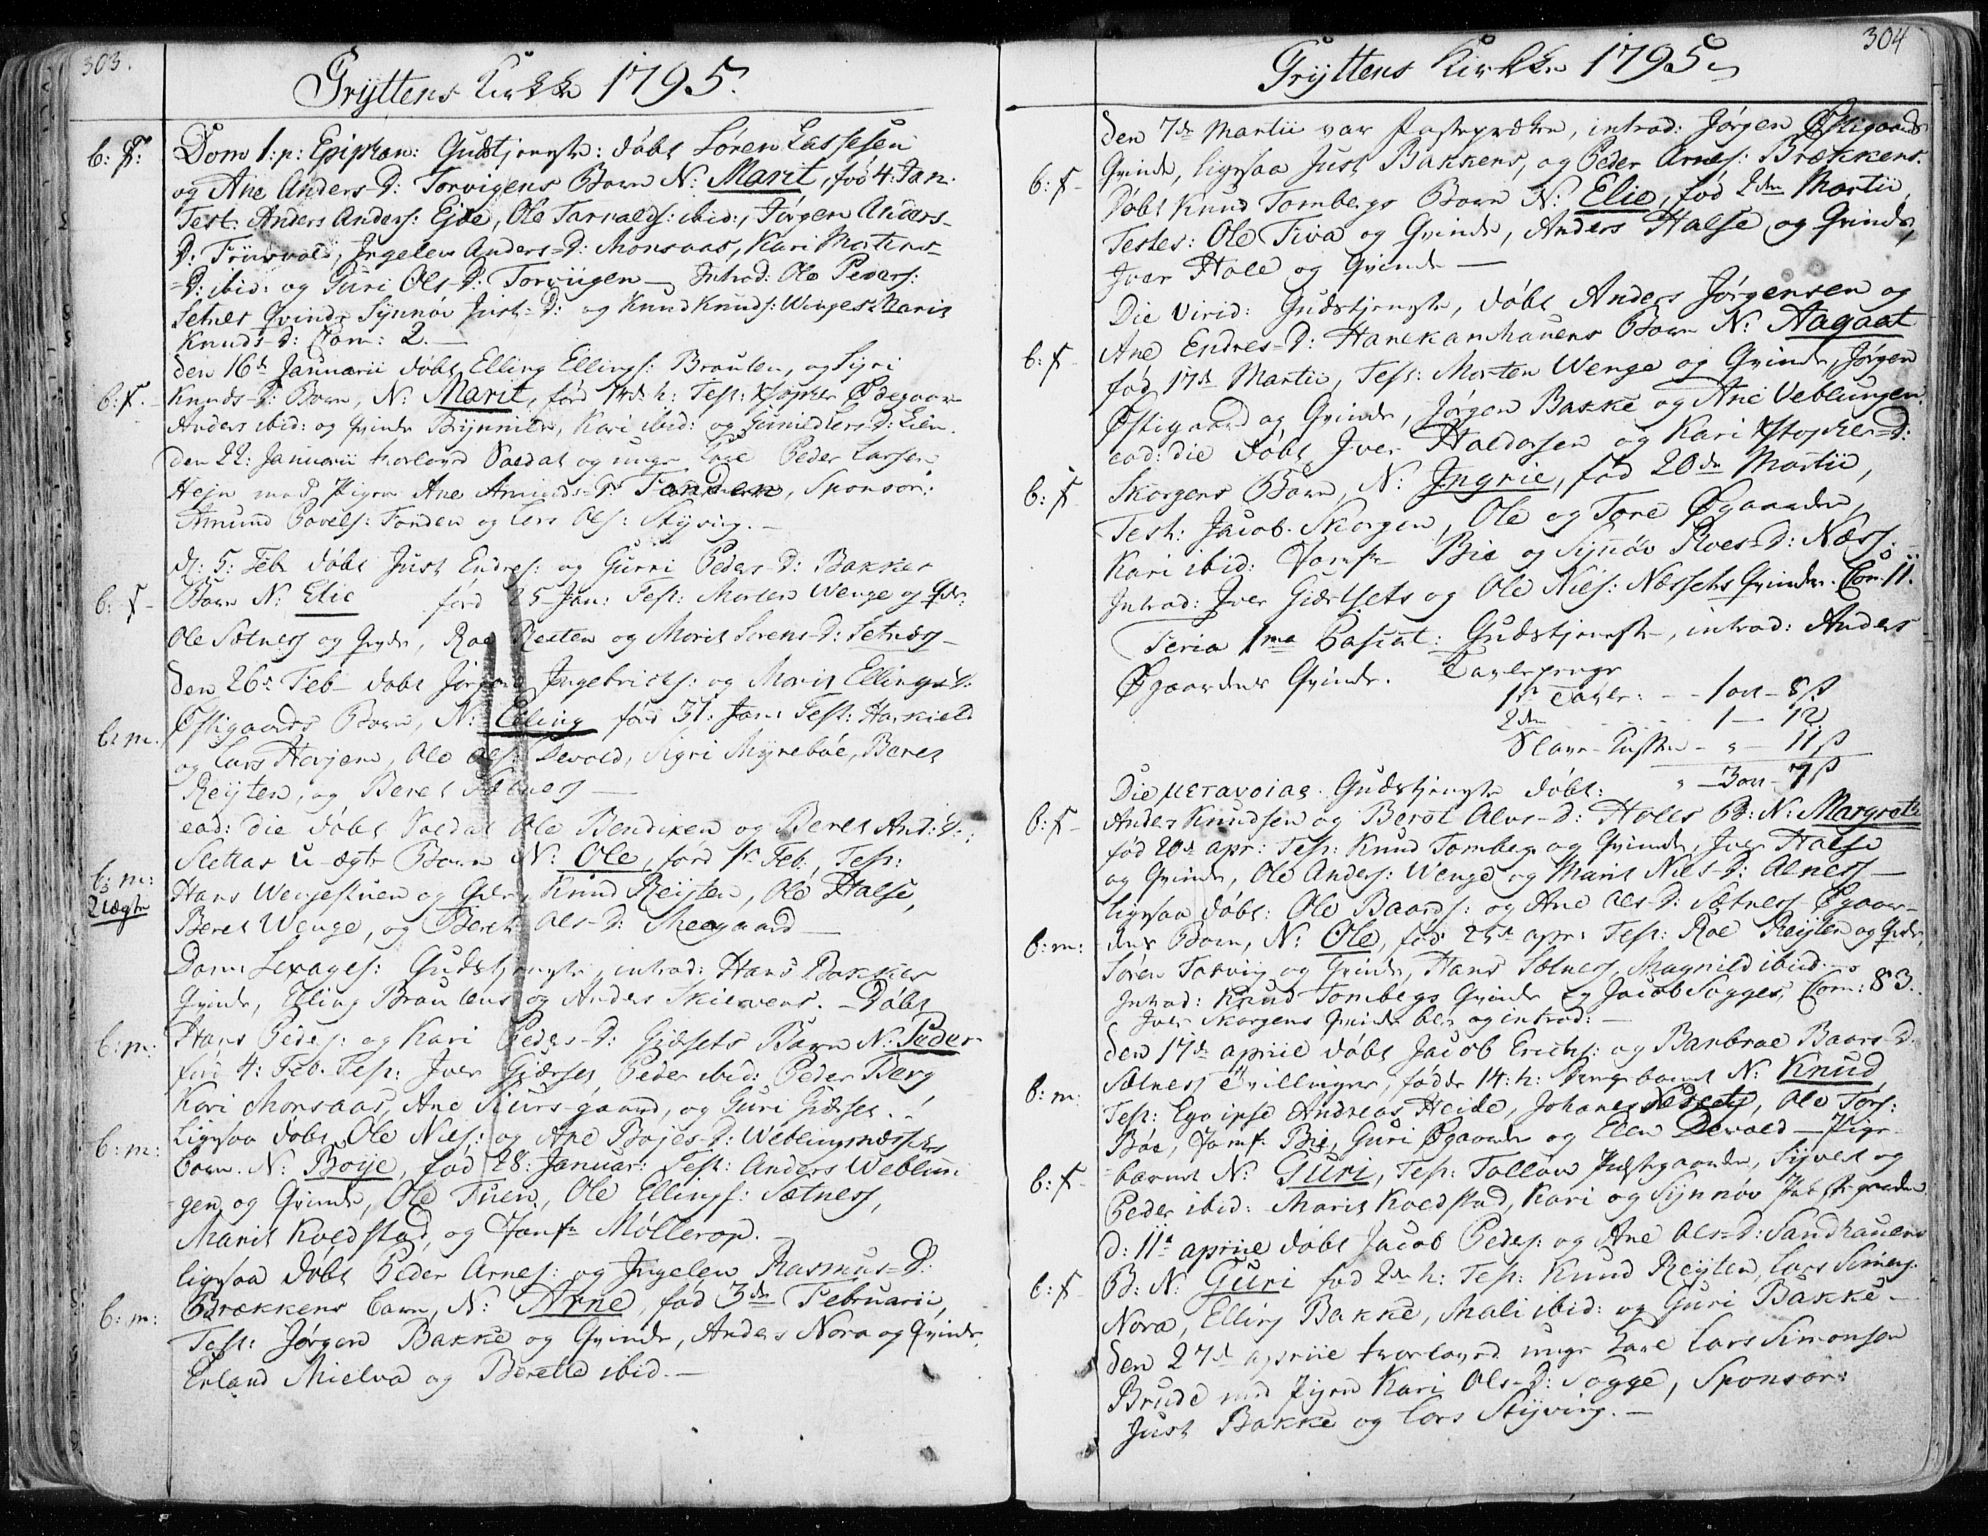 303.
Gryttens Kirke 1795.
b: f: Dom 1: p: Epiphan: Gudstjeneste: døbt Søren Lassesen
og Ane Anders-D: Torvigens Barn N: Marit, fød 4: Jan:
Test: Anders Anders: Eide, Ole Tarvalds: ibid:, Jørgen Anders-
D: Friisvold, Ingelev Anders-D: Monsaas, Kari Mortens-
D: ibid: og Guri Ols-D: Torvigen. Introd: Ole Peders:
Setnes Qvinde Synnøv Just-D: og Knud Knuds: Wenges Marit
Knuds-D: Com: 2. —
den 16de Januarii døbt Elling Ellings: Brauten, og Syri
b: f. Knuds-D: Barn, N: Marit, fød h: Test: Xstopher Øvegaar
Anders ibid: og Qvinde Kari ibid: og Lien.
den 22: Januarii trolovd Soldat og unge Karl Peder Larsen
Hejn med Pigen Ane Amunds-D: Tonden, Sponsor:
Amund Povels: Tonden og Lars Ols: Styving. —
d: 5: Feb døbt Just Endres: og Gurri Peders-D: Bakkes
b: f- Barn N: Elie fød 25 Jan: Test: Morten Wenge og Qvde:
Ole Sætness og Qvde, Roe Reiten og Marit Sørens-D: Setness —
den 26de Feb døbt Jørgen Ingebrichs: og Marit Ellings-D:
b: m. Østigaards Barn, N: Elling fød 31: Jan: Test:
og Lars Herjen, Ole Ols: Devold, Sigri Myrebøe, Beret
Reiten, og Beret Sætness —
eod: die døbt Soldat Ole Bendixen og Beret And:D:
Slettas u-ægte Barn N: Ole, fød 1ste Feb:, Test:
b: m:
Uægte
Hans Wengestuen og Qvde, Knud Reiten, Ole Halse,
Beret Wenge, og Beret Ols-D: Meegaard —
Dom: Sexages: Gudstjeneste, introd: Hans Bakkes
Qvinde, Elling Brautens og Anders Skievens. — Døbt
b: m: Hans Peders: og Kari Peders-D: Giersets Barn N: Peder
fød 4: Feb. Test: Iver Gierset, Peder ibid: Peder Berg
Kari Monsaas, Ane Siursgaard, og Guri Gierset. —
b: m: Ligesaa døbt Ole Niels: og Ane Bojes-D: Weblungnæssets
Barn. N: Boije, fød 28: Januar: Test: Anders Weblun-
gen og Qvinde, Ole Tuen, Ole Ellings: Sætness,
Marit Kvedstad, og Jomfr Møllerop. —
ligesaa døbt Peder Arnes: og Ingelev Rasmus-D:
b: m: Brækkens Barn, N: Arne, fød 3de Februarii,
Test: Jørgen Bakke og Qvinde, Anders Nora og Qvinde
Erland Mielva og Berette ibid. —
304
Gryttens Kirke 1795.
den 7de Martii var Fasteprædken, introd: Jørgen Østigaards
Qvinde, ligesaa Just Bakkens, og Peder Arnes: Brækkens.
b: f- Døbt Knud Tombergs Barn N: Elie, fød 2den Martii,
Testes: Ole Fiva og Qvinde, Anders Halse og Qvinde,
Iver Hole og Qvinde —
Die Virid: Gudstjeneste, døbt Anders Jørgensen og
b: f- Ane Endres-D: Hanekamhauens Barn N: Aagaat
fød 17de Martii, Test: Morten Wenge og Qvinde, Jørgen
Østigaard og Qvinde, Jørgen Bakke og Ane Veblungen.
eod: die døbt Iver Haldorsen og Kari Xstopher-D:
b: f- Skorgens Barn, N: Ingrie, fød 20de Martii,
Test: Jacob Skorgen, Ole og Tore Øgaarden,
Kari ibid: Jomfr Bie og Synøv Roes-D: Næss.
Introd: Iver Giersets og Ole Niels: Næssets Qvinder. Com: 11.
Feria 1ma Paschat: Gudstjeneste, introd: Anders
Øgaardens Qvinde. Tavlepenge
1ste Tavle: - - 1 ort - 8 ß
2den - - 1 - 12
- " - 11 ß
" - 3 ort - 7 ß
Die μετανοιας Gudstjeneste døbt:
b: f- Anders Knudsen og Beret Alvs-D: Holes B: N: Margrete
fød 20de apr: Test: Knud Tomberg og Qvinde, Iver Halse
og Qvinde, Ole Anders: Wenge og Marit Niels-D: Alness —
ligesaa døbt: Ole Baards: og Ane Ols-D: Sætness Øgaar-
b: m: dens Barn, N: Ole, fød 25de apr: Test: Roe Reiten og Qvde,
Søren Torvig og Qvinde, Hans Sætness, Magnild ibid —
Introd: Knud Tombergs Qvinde og Jacob Sogges, Com: 83.
Iver Skorgens Qvinde blev og introd: —
den 17de aprile døbt Jacob Erichs: og Banbroe Baars-D.
b: m. Sætness Tvillinger, fødde 14: h: Drengebarnet N: Knud
Test: Ego ipse Andreas Heide, Johanes, Ole Tørs:
Bøe, Jomfr Bie, Guri Øgaarden og Ellen Devold — Pige-
b: f- barnet N: Guri, Test: Tolløv Præstegaarden, Syvert og
Peder ibid: Marit Kvedstad, Kari og Synnøv Præstegaarden
d: 11te aprile døbt Jacob Peders: og Ane Ols-D: Sandhauens
b: f- B: N: Guri fød 2den h: Test: Knud Reiten, Lars Simens.
Nora, Elling Bakke, Mali ibid: og Guri Bakke —
den 27de aprile trolovd unge Karl Lars Simonsen
Brude med Pigen Kari Ols-D: Sogge, Sponsor:
Just Bakke og Lars Styving. —